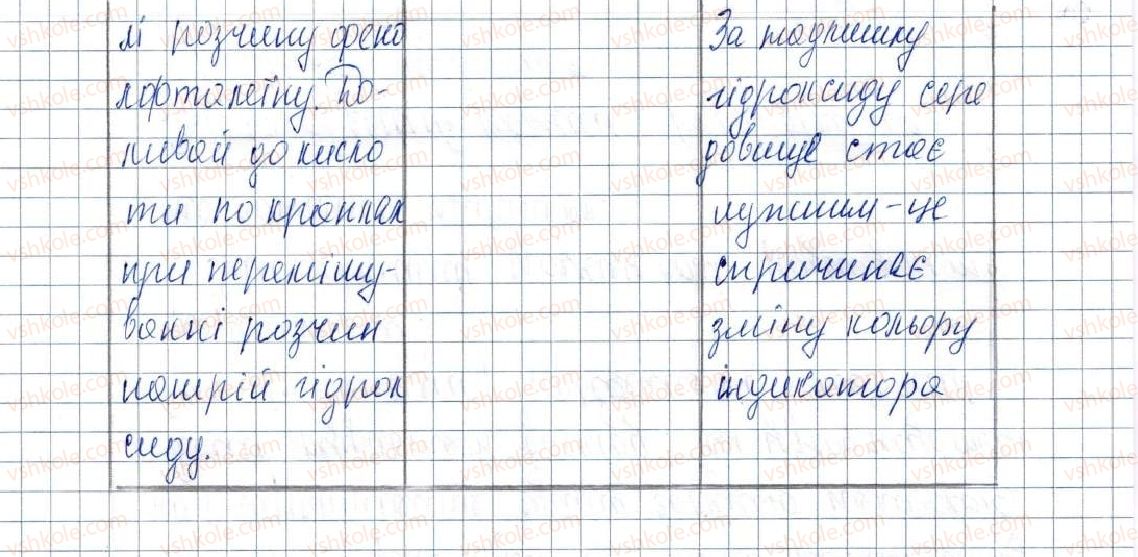 лі розчину фено
лфталеїну. До-
ливай до кисло
ти по краплах
при перемішу-
ванні розчин
натрій гідрок
сиду.
За надлишку
гідроксиду сере
довище стає
лужним - це
спричиняє
зміну кольору
індикатора